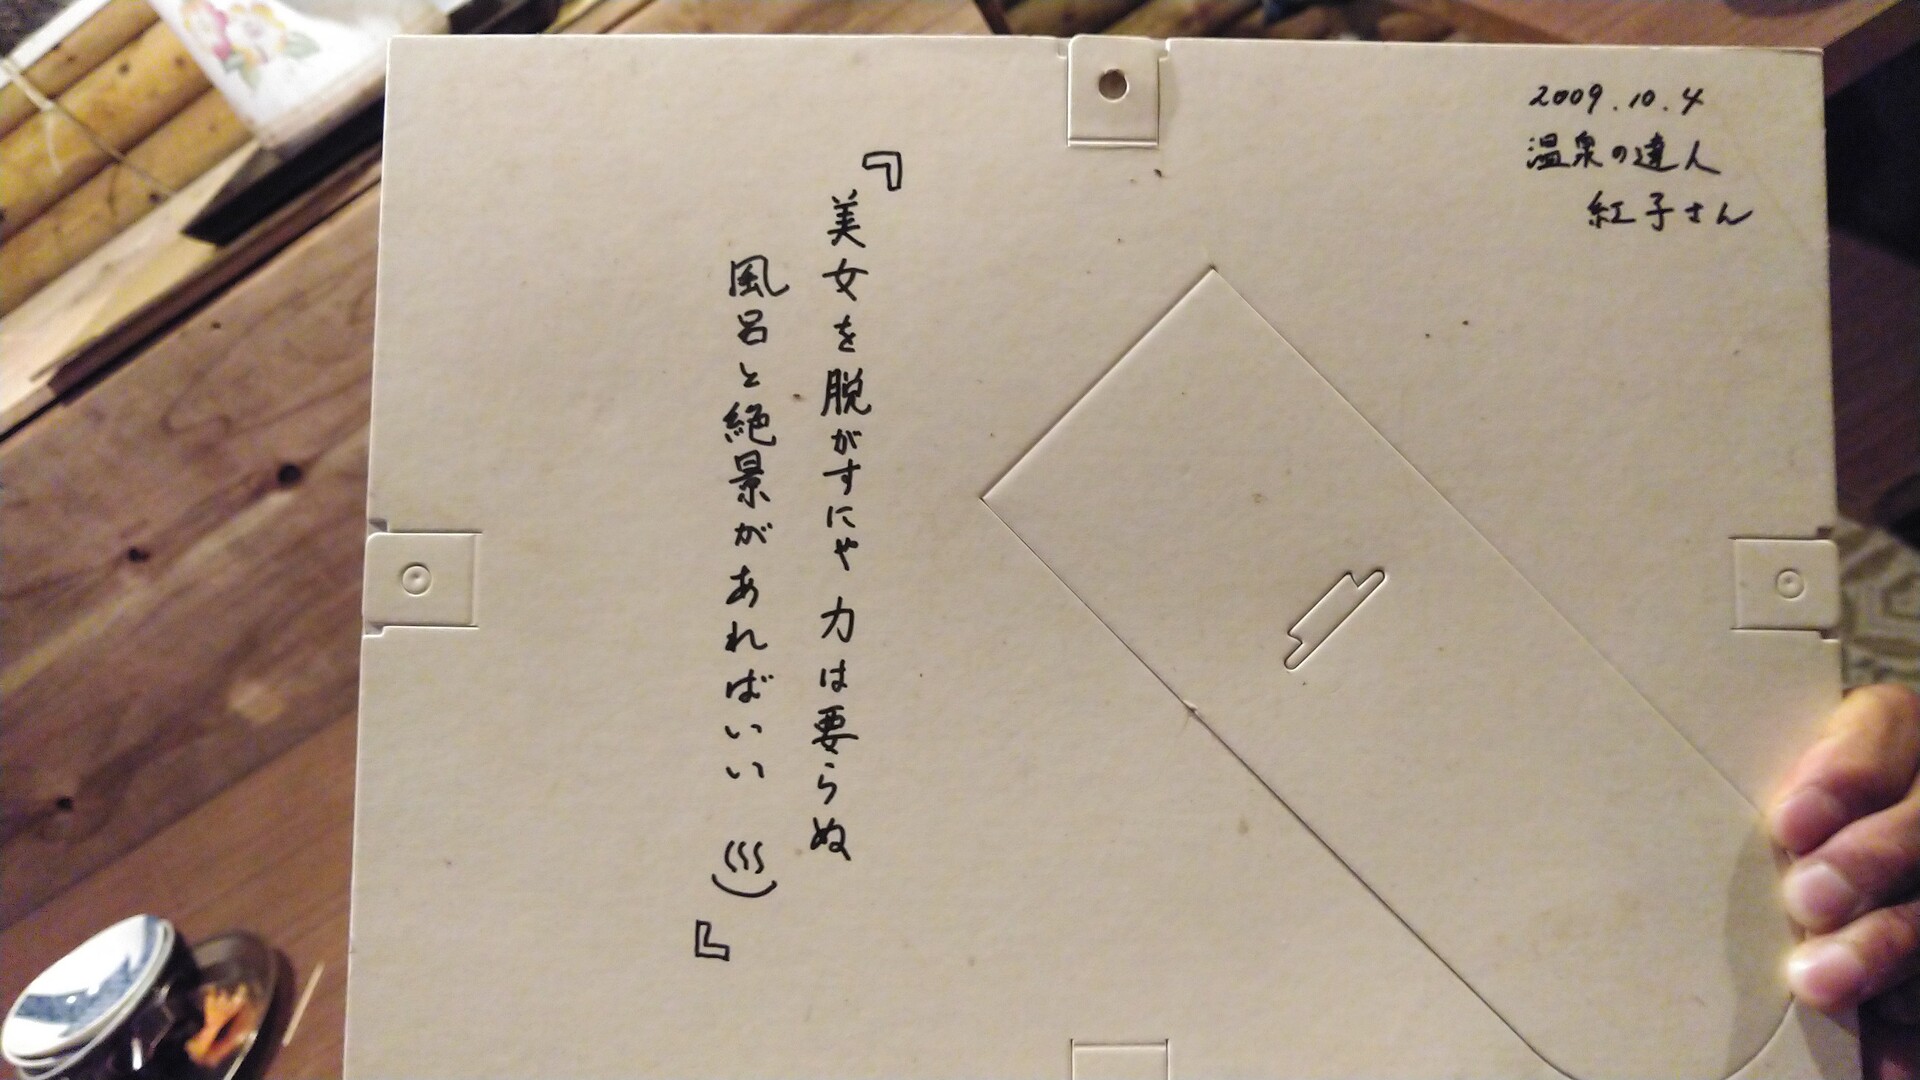 2009.10.4
温泉の達人
紅子さん
『美女を脱がすにや力は要らぬ
風呂と絶景があればいい♨』